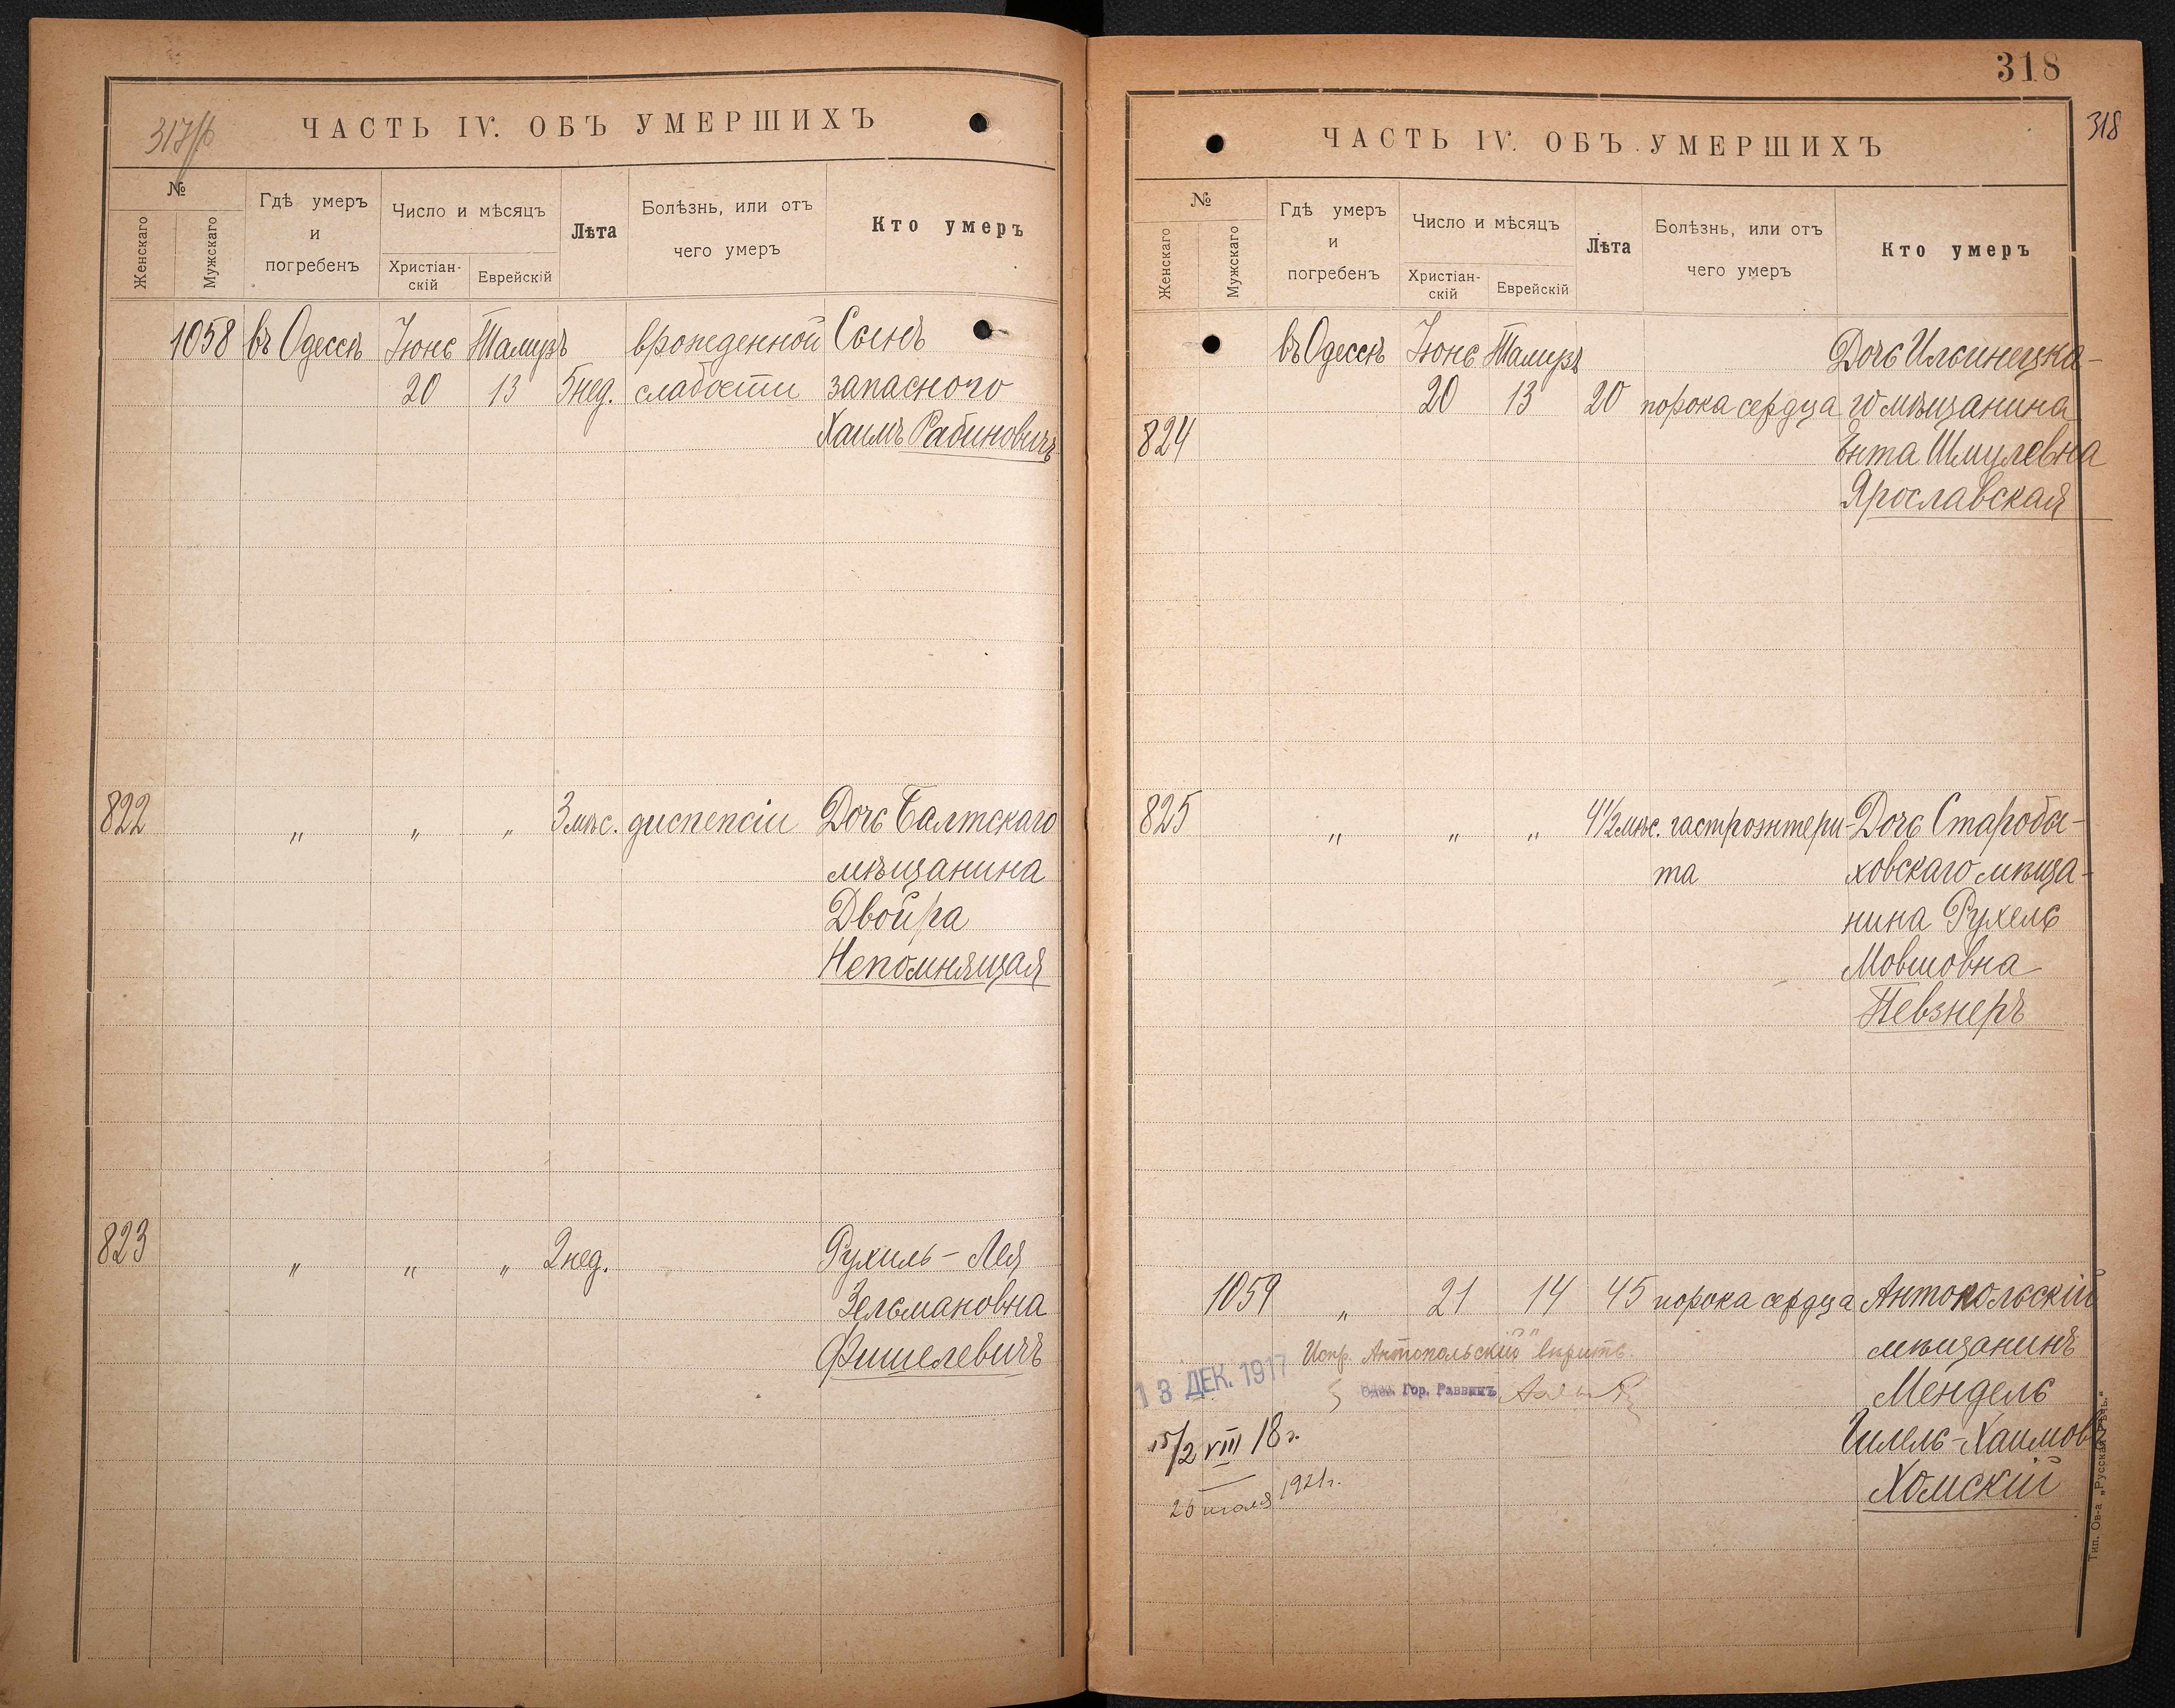 317/б
ЧАСТЬ IV. ОБЪ УМЕРШИХЪ
№
Женскаго
Мужскаго
Гдѣ умеръ
и
погребенъ
Число и мѣсяцъ
Христіан-
скій
Еврейскій
Лѣта
Болѣзнь, или отъ
чего умеръ
Кто умеръ
1058 въ Одессѣ Іюнь Тамузъ врожденной Сынъ
20 13 5 нед. слабости запасного
Хаимъ Рабиновичъ
822 „ „ „ 3 мѣс. диспепсіи Дочь Балтскаго
мѣщанина
Двойра
Непомнящая
823 „ „ „ 2 нед. Рухиль-Лея
Зельмановна
Фишелевичъ
318
318
ЧАСТЬ IV. ОБЪ УМЕРШИХЪ
№
Женскаго
Мужскаго
Гдѣ умеръ
и
погребенъ
Число и мѣсяцъ
Христіан-
скій
Еврейскій
Лѣта
Болѣзнь, или отъ
чего умеръ
Кто умеръ
въ Одессѣ Іюнь Тамузъ Дочь Ильинецка-
20 13 20 порока сердца го мѣщанина
824 Ента Шмулевна
Ярославская
825 „ „ „ 4 1/2 мѣс. гастроэнтери- Дочь Старобы-
та ховскаго мѣща-
нина Рухель
Мовшовна
Певзнеръ
1059 „ 21 14 45 порока сердца Антопольскій
Испр. „Антопольскій" вѣрить. мѣщанинъ
13 ДЕК. 1917 Одес. Гор. Раввинъ Мендель
15/2 VIII 18 г. Гилель-Хаимовъ
26 июля 1921 г. Хомскій
Тип. Ов-а „Русская Рѣчь."